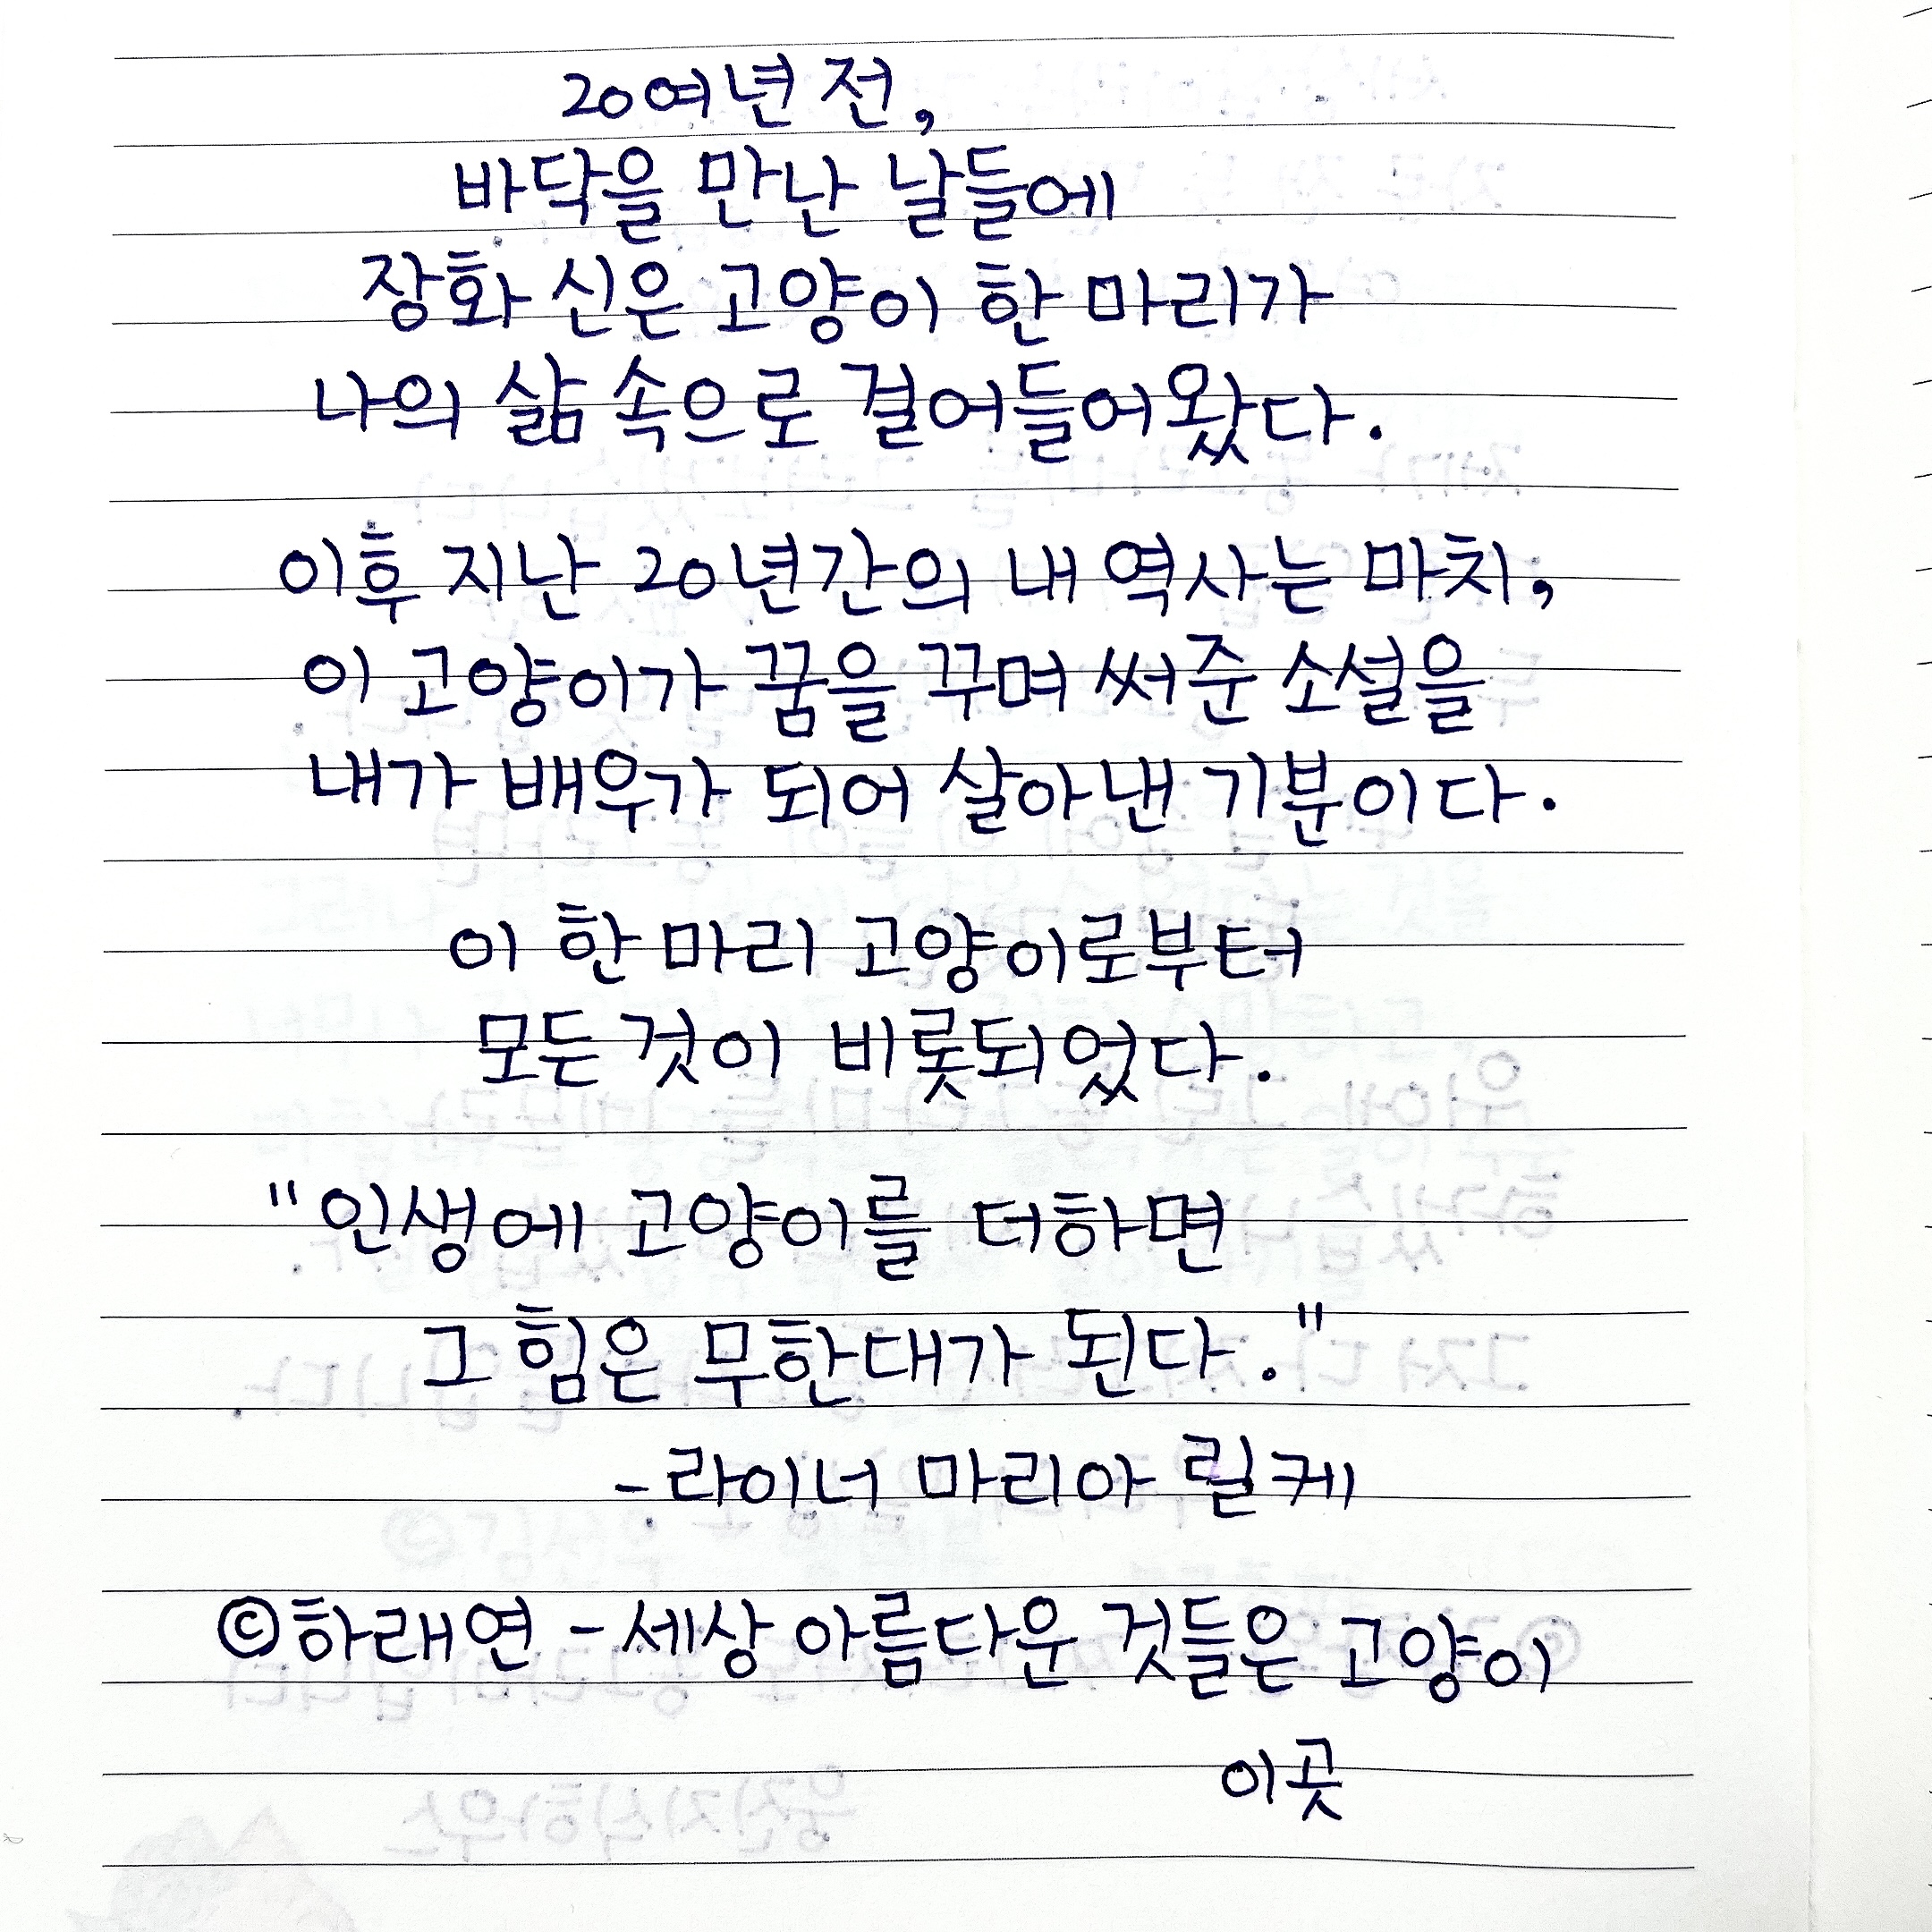 20여년 전,
바닥을 만난 날들에
장화 신은 고양이 한 마리가
나의 삶 속으로 걸어들어왔다.
이후 지난 20년간의 내 역사는 마치,
이 고양이가 꿈을 꾸며 써준 소설을
내가 배우가 되어 살아낸 기분이다.
이 한 마리 고양이로부터
모든 것이 비롯되었다.
"인생에 고양이를 더하면
그 힘은 무한대가 된다."
-라이너 마리아 릴케
©하래연 - 세상 아름다운 것들은 고양이
이곳